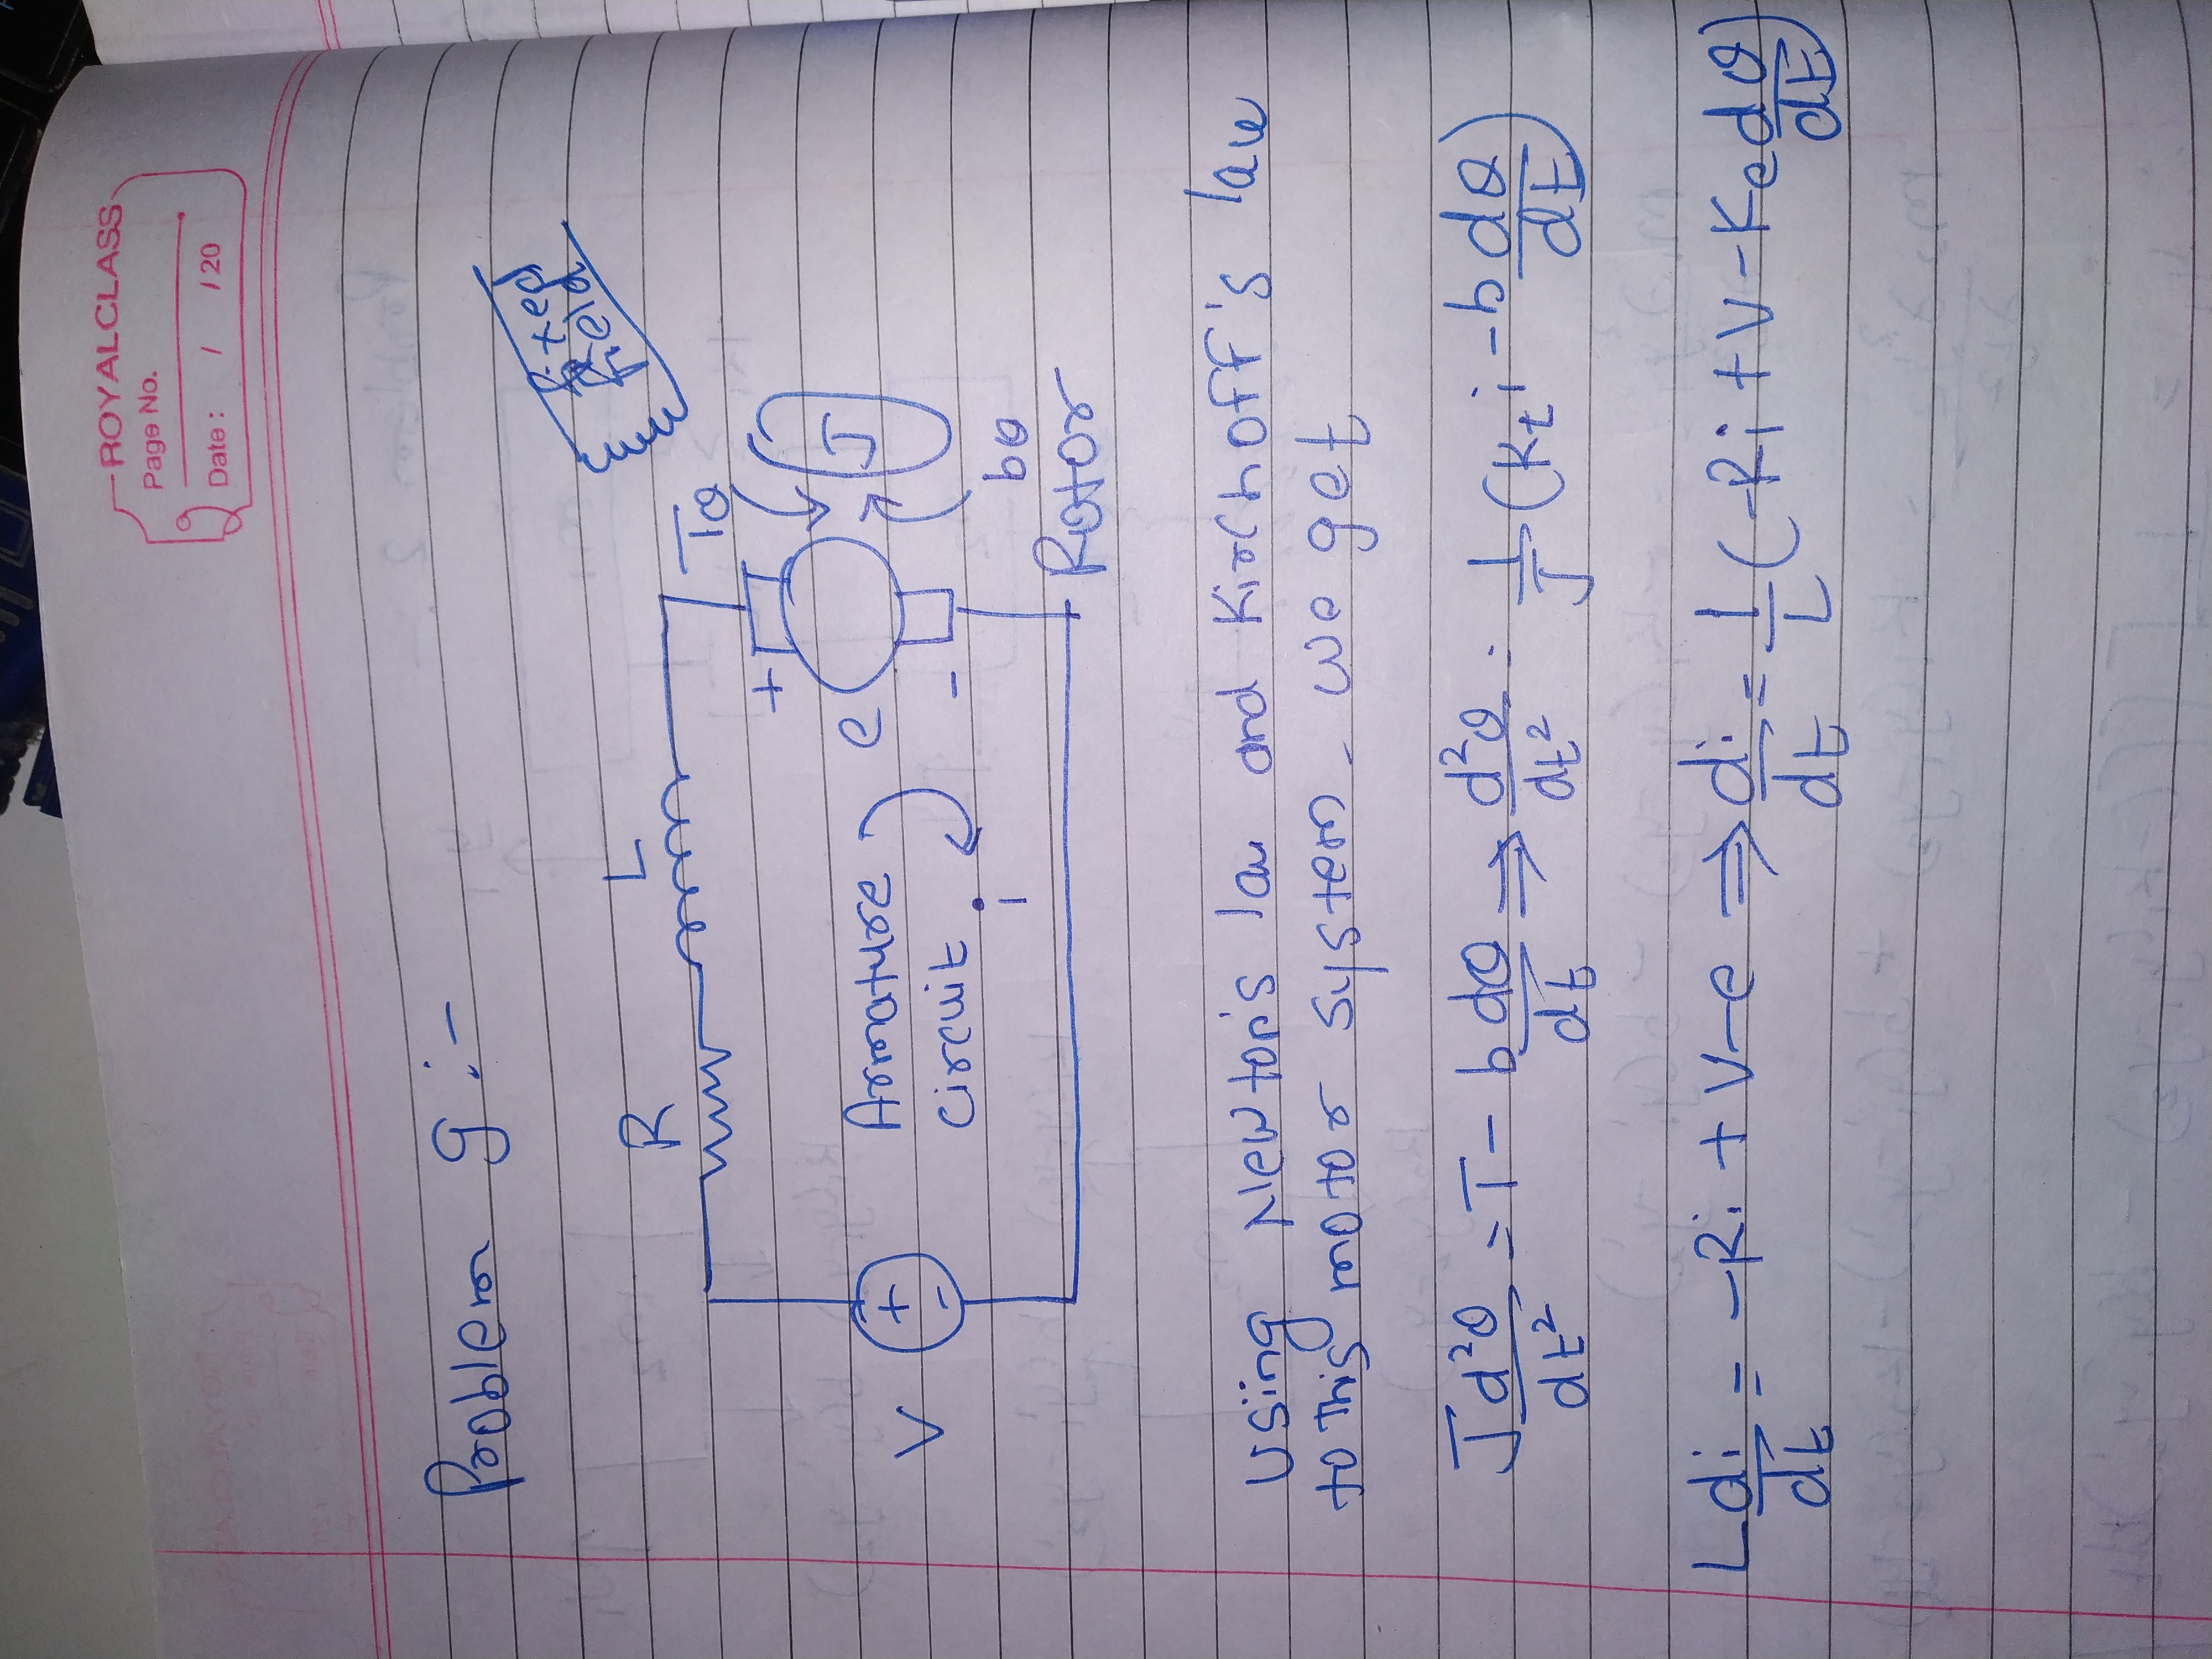 ROYALCLASS
Page No.
Date : / /20
Problem 9 :-
fixed
field
R
L
Tθ
+
J
e
V
+
-
Armature
circuit
i
-
bθ
Rotor
Using Newton's law and Kirchoff's law
to this motor system we get
J d²θ/dt² = T - b dθ/dt ⇒ d²θ/dt² = 1/J (Kt i - b dθ/dt)
L di/dt = -Ri + V - e ⇒ di/dt = 1/L (-Ri + V - Ke dθ/dt)